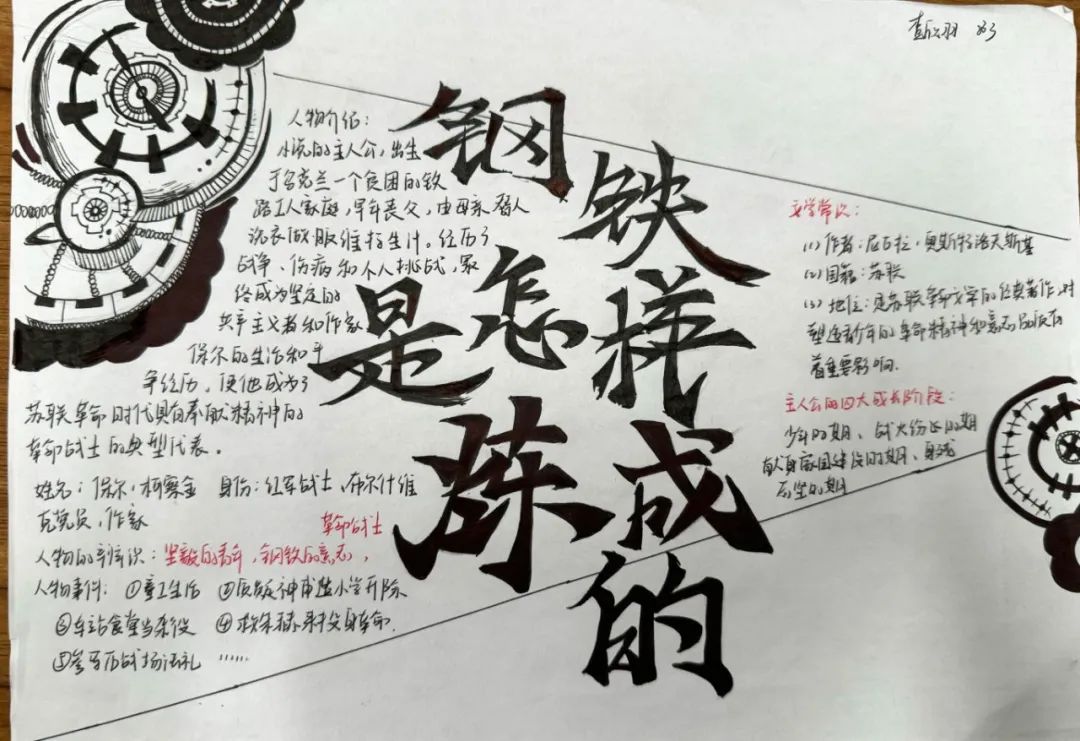 钢铁是怎样炼成的
人物介绍:
小说的主人公,出生
于乌克兰一个贫困的铁
路工人家庭,早年丧父,由母亲替人
洗衣做服维持生计。经历了
战争、伤病和个人挑战,最
终成为坚定的
共产主义者和作家
保尔的生活和斗
争经历,使他成为了
苏联革命时代具有奉献精神的
革命战士的典型代表。
姓名:保尔·柯察金 身份:红军战士,布尔什维
克党员,作家
革命战士
人物的辛辨识:坚毅的青年,钢铁的意志,
人物事件: ①童工生活 ②质疑神甫遭小学开除
③车站食堂当杂役 ④救朱赫来投身革命.
⑤参军历战场洗礼 ……
文学常识:
(1) 作者:尼古拉·奥斯特洛夫斯基
(2) 国籍:苏联
(3) 地位:是苏联新文学的经典著作,对
塑造青年的革命精神和意志品质有
着重要影响.
主人公的四大成长阶段:
少年时期、战火纷飞时期
献身家国建设时期、身残
志坚时期